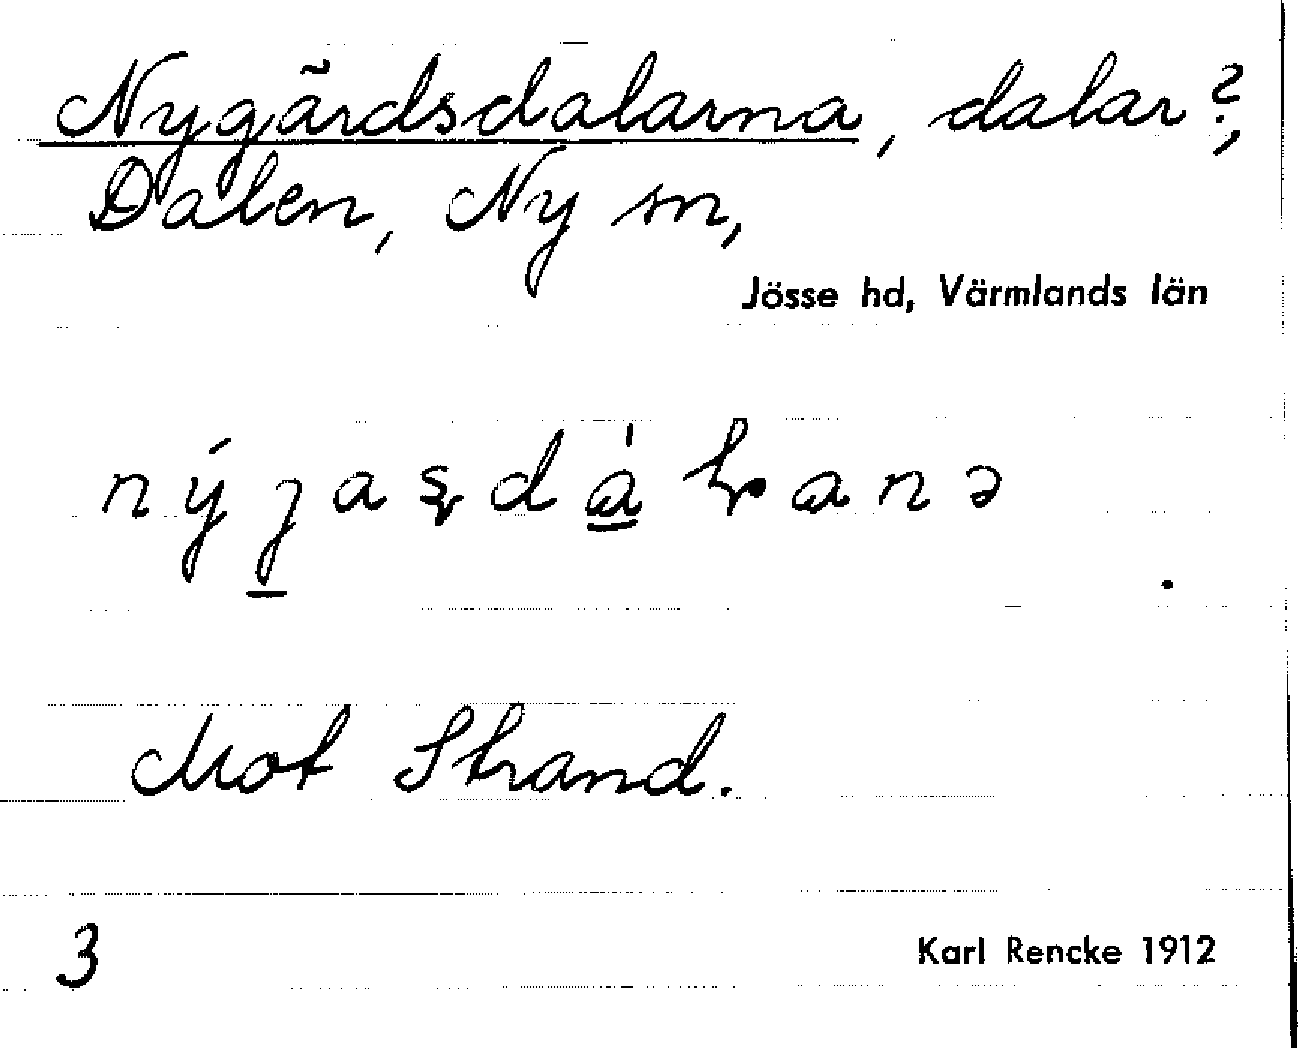 Nygårdsdalarna, dalar?,
Dalen, Ny sn,
Jösse hd, Värmlands län
Mot Strand.
3
Karl Rencke 1912